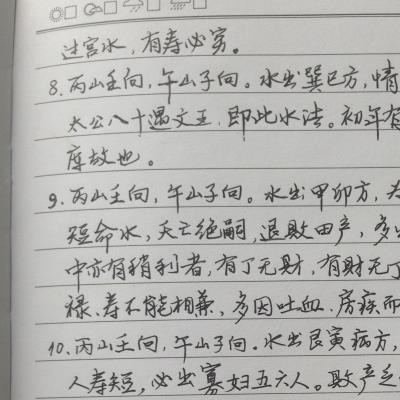 过宫水，有寿必穷。
8.丙山壬向，午山子向。水出巽巳方，情
太公八十遇文王，即此水法。初年有
库故也。
9.丙山壬向，午山子向。水出甲卯方，为
短命水，夭亡绝嗣，退败田产，多出
中亦有稍利者，有丁无财，有财无丁
禄、寿不能相兼，多因吐血、痨疾而
10.丙山壬向，午山子向。水出艮寅病方，
人寿短，必出寡妇五六人。败产乏